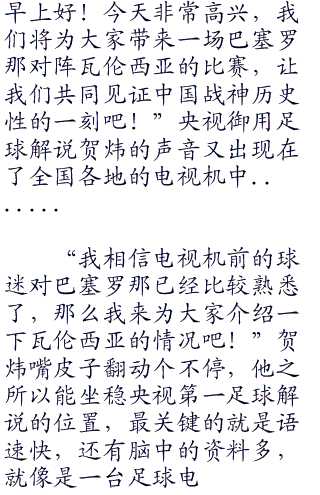 早上好！今天非常高兴，我
们将为大家带来一场巴塞罗
那对阵瓦伦西亚的比赛，让
我们共同见证中国战神历史
性的一刻吧！”央视御用足
球解说贺炜的声音又出现在
了全国各地的电视机中..
.....
“我相信电视机前的球
迷对巴塞罗那已经比较熟悉
了，那么我来为大家介绍一
下瓦伦西亚的情况吧！”贺
炜嘴皮子翻动个不停，他之
所以能坐稳央视第一足球解
说的位置，最关键的就是语
速快，还有脑中的资料多，
就像是一台足球电